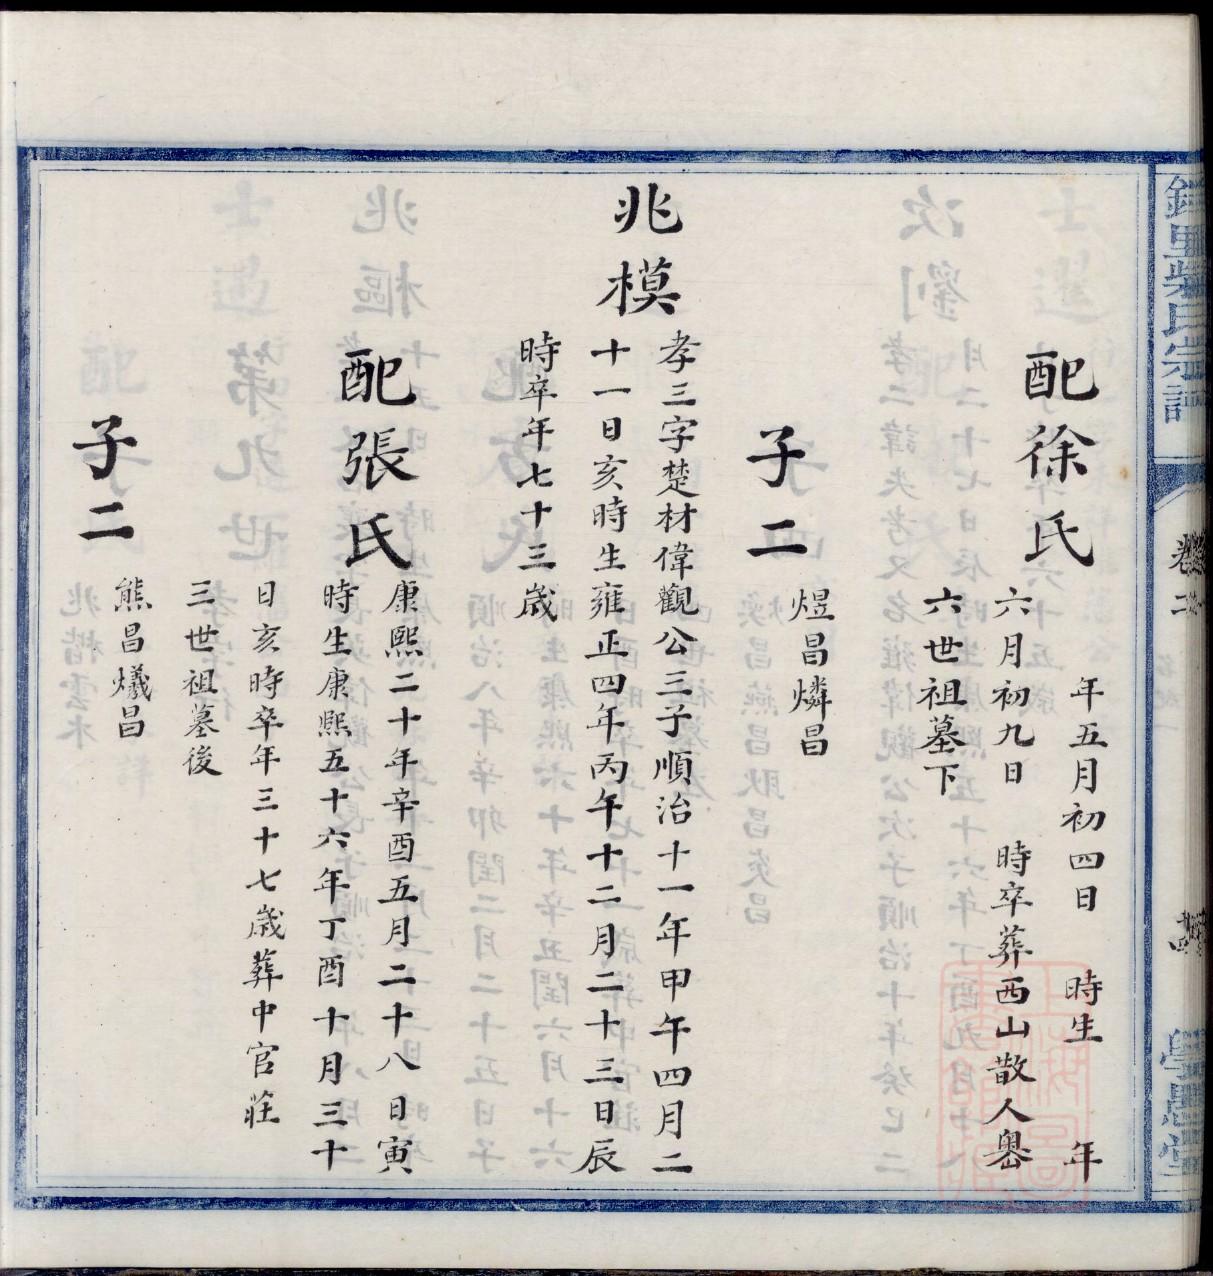 配徐氏
年五月初四日　時生　年
六月初九日　時卒葬西山散人嶴
六世祖墓下
子二
煜昌燐昌
兆模
孝三字楚材偉觀公三子順治十一年甲午四月二
十一日亥時生雍正四年丙午十二月二十三日辰
時卒年七十三歲
配張氏
康熙二十年辛酉五月二十八日寅
時生康熙五十六年丁酉十月三十
日亥時卒年三十七歲葬中官莊
三世祖墓後
子二
熊昌爔昌